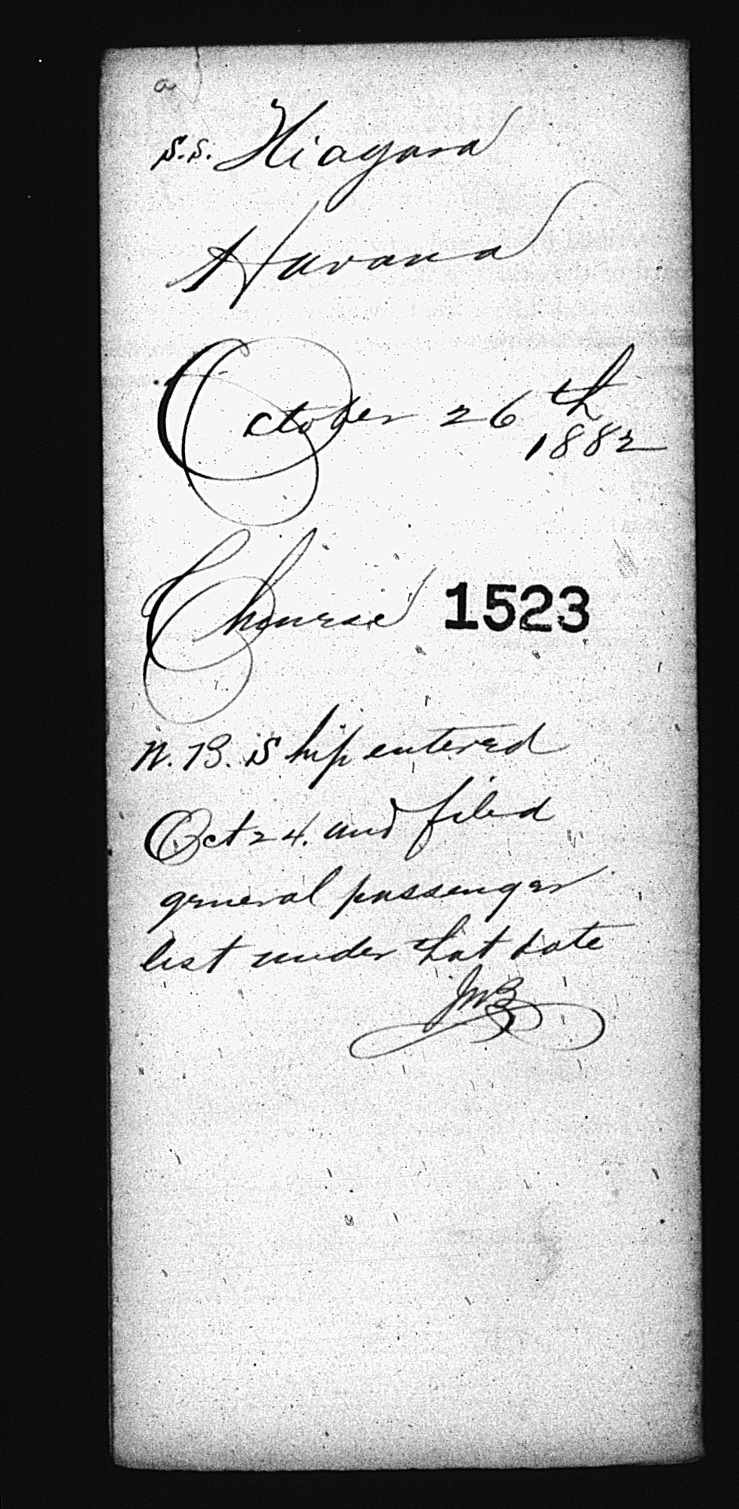 S.S. Niagara
Havana
October 26th
1882
Chinese 1523
N.B. Ship entered
Oct 24. and filed
general passenger
list under that date
JMB